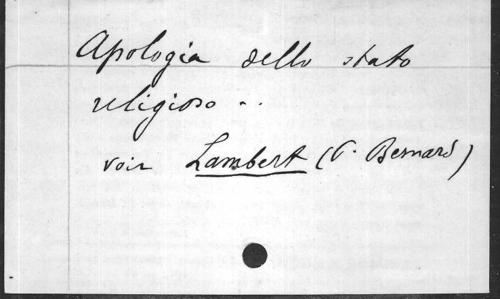 Apologia dello stato
religioso ..
voir Lambert (P. Bernard)